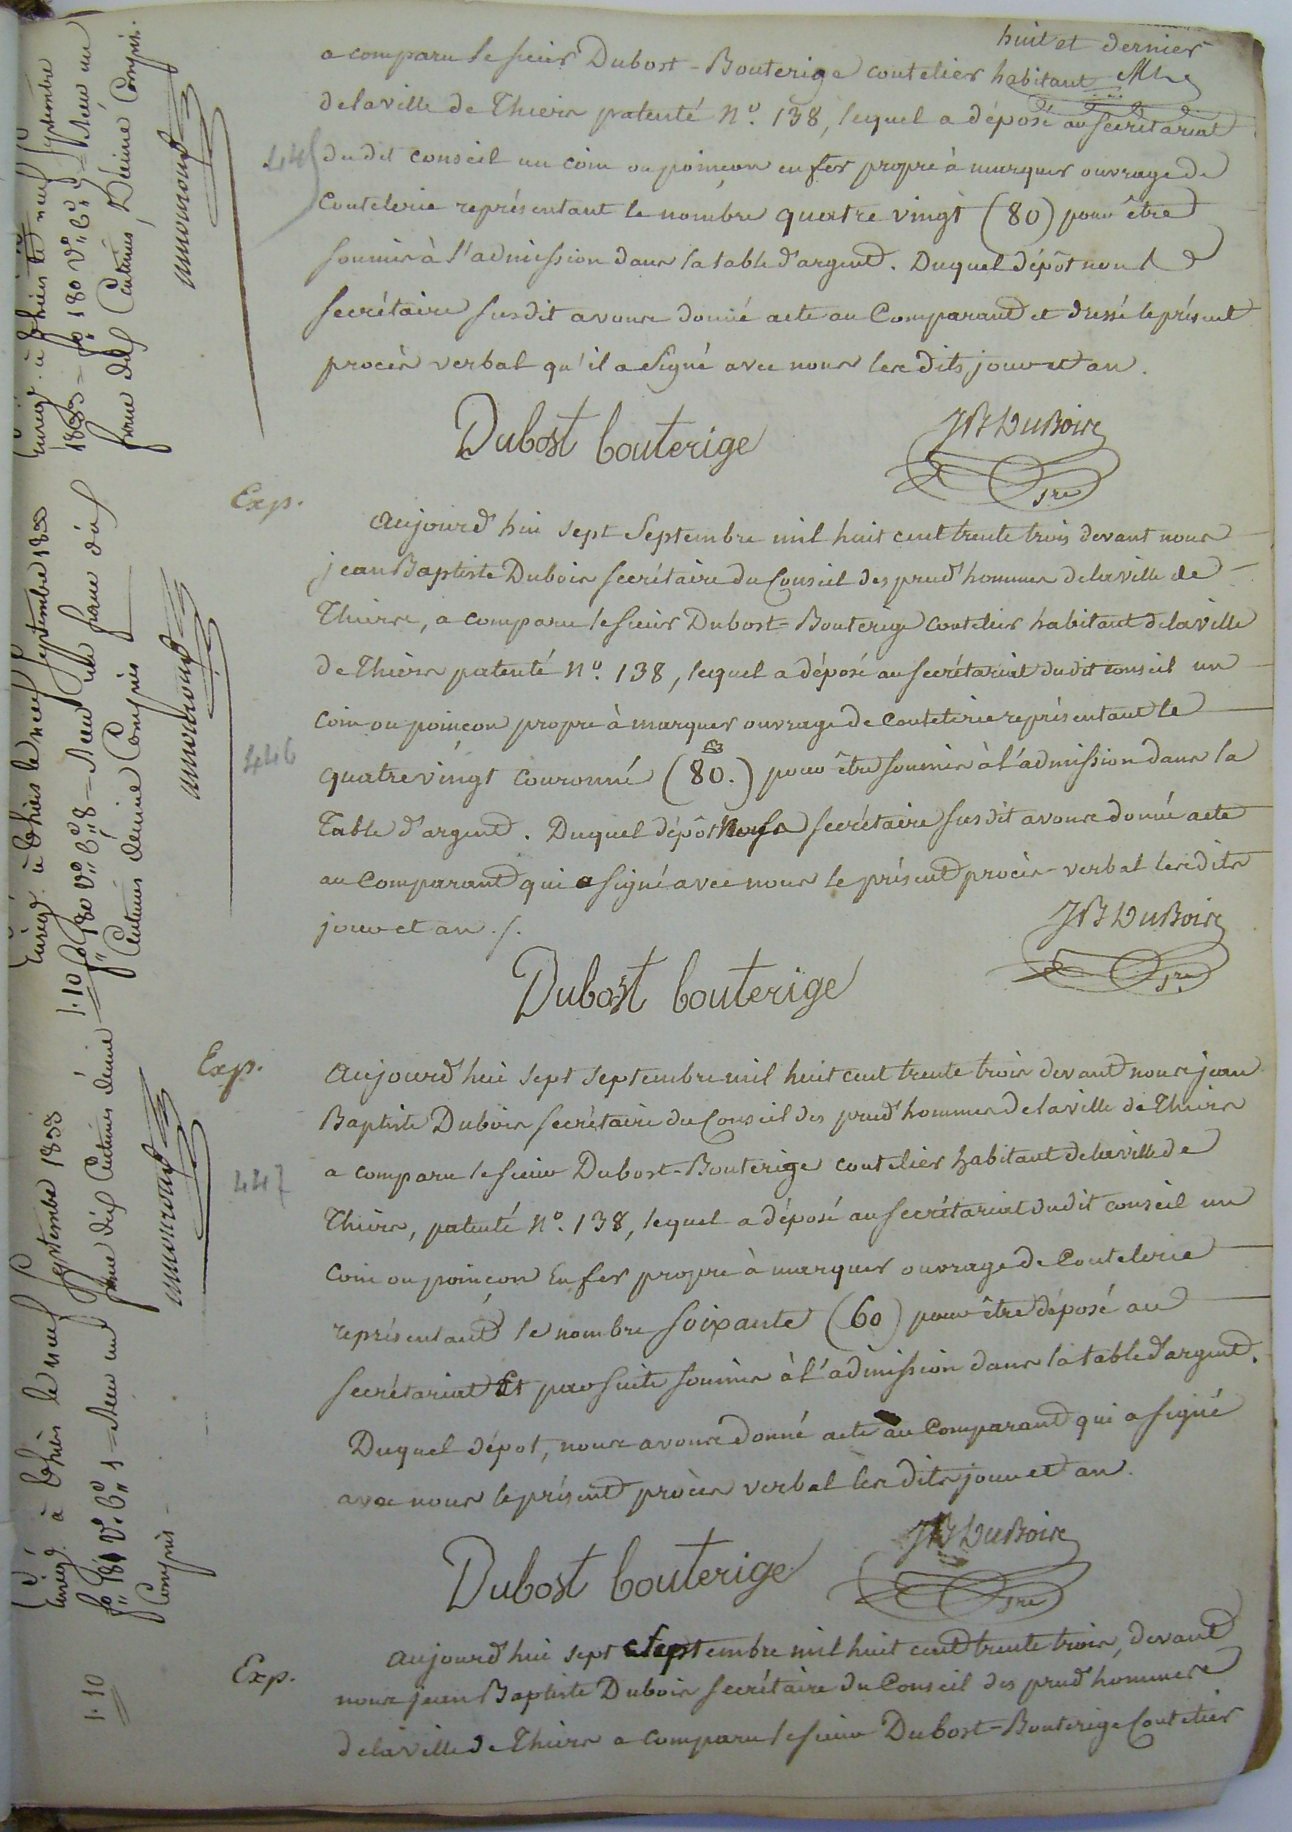 huit et dernier
a comparu le sieur Dubost-Bouterige coutelier habitant
de la ville de Thiers patenté N.º 138, lequel a déposé au secrétariat
445
du dit conseil un coin ou poinçon en fer propre à marquer ouvrage de
coutelerie représentant le nombre quatre vingt (80) pour être
soumis à l'admission dans la table d'argent. Duquel dépôt nous
secrétaire susdit avons donné acte au Comparant et dressé le présent
procès verbal qu'il a signé avec nous lesdits jour et an.
Dubost bouterige
JB Dubois
sre
Exp.
Aujourd'hui sept Septembre mil huit cent trente trois devant nous
jean Baptiste Dubois secrétaire du Conseil des prud'hommes de la ville de
Thiers, a comparu le sieur Dubost-Bouterige coutelier habitant de la ville
de Thiers patenté N.º 138, lequel a déposé au secrétariat du dit conseil un
coin ou poinçon propre à marquer ouvrage de coutelerie représentant le
446
quatre vingt couronné (80.) pour être soumis à l'admission dans la
Table d'argent. Duquel dépôt Nous secrétaire susdit avons donné acte
au Comparant qui a signé avec nous le présent procès-verbal lesdits
jour et an ./.
JB Dubois
sre
Dubost bouterige
Exp.
Aujourd'hui sept septembre mil huit cent trente trois devant nous jean
Baptiste Dubois secrétaire du Conseil des prud'hommes de la ville de Thiers
a comparu le sieur Dubost-Bouterige coutelier habitant de la ville de
447
Thiers, patenté N.º 138, lequel a déposé au secrétariat dudit conseil un
coin ou poinçon En fer propre à marquer ouvrage de Coutelerie
représentant le nombre soixante (60) pour être déposé au
secrétariat Et par suite soumis à l'admission dans la table d'argent.
Duquel dépot, nous avons donné acte au Comparant qui a signé
avec nous le présent procès verbal les dits jour et an.
Dubost bouterige
JB Dubois
sre
Exp.
Aujourd'hui sept Septembre mil huit cent trente trois, devant
nous jean Baptiste Dubois secrétaire du Conseil des prud'hommes
de la ville de Thiers a comparu le sieur Dubost-Bouterige Coutelier
Enregé à Thiers le neuf Septembre
1833 = fo 180 Vo Co 7 = Reçu un
franc dix Centimes, Décime Compris.
Enregé à Thiers le neuf Septembre 1833
fo 180 Vo Co 8 = Reçu un franc dix
Centimes décime Compris
1.10
Enregé à Thiers le neuf Septembre 1833
fo 180 Vo Co 1 = Reçu un franc dix Centimes décime
Compris =
1.10